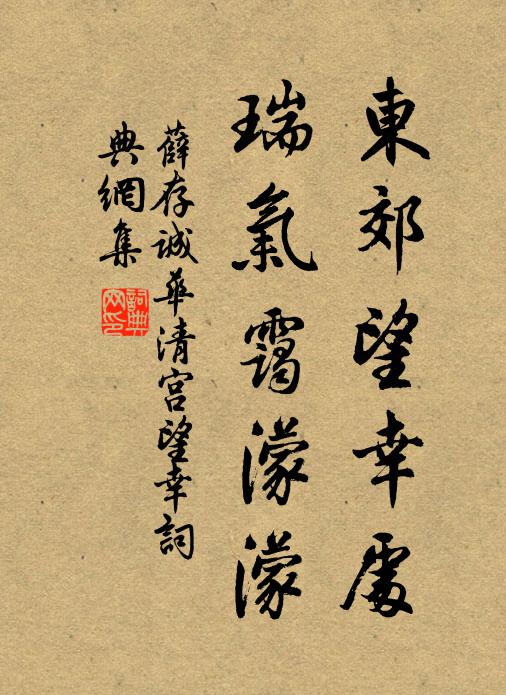 東郊望幸處
瑞氣靄濛濛
薛存誠華清宮望幸詞
典網集
詞典网印